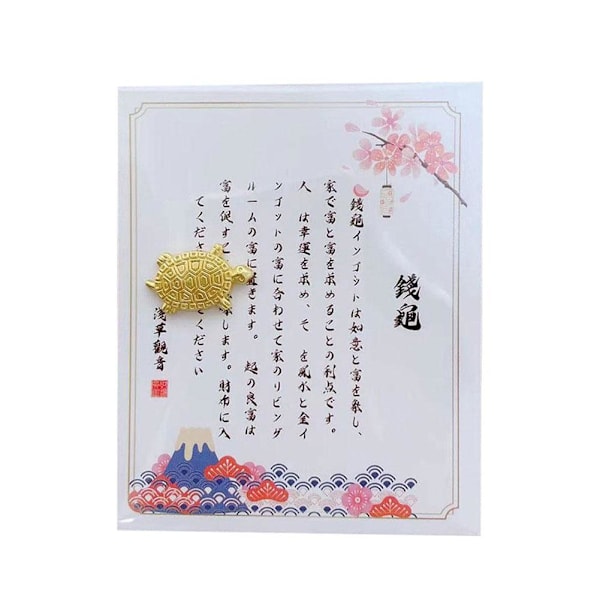 錢龜
錢龜インゴットは如意と富を象し、
家で富と富を求めることの利点です。
人 は幸運を求め、そ を風水と金イ
ンゴットの富に合わせて家のリビング
ルームの富に きます。 起の良富は
富を促す します。財布に入
てくださ てください
浅草觀音